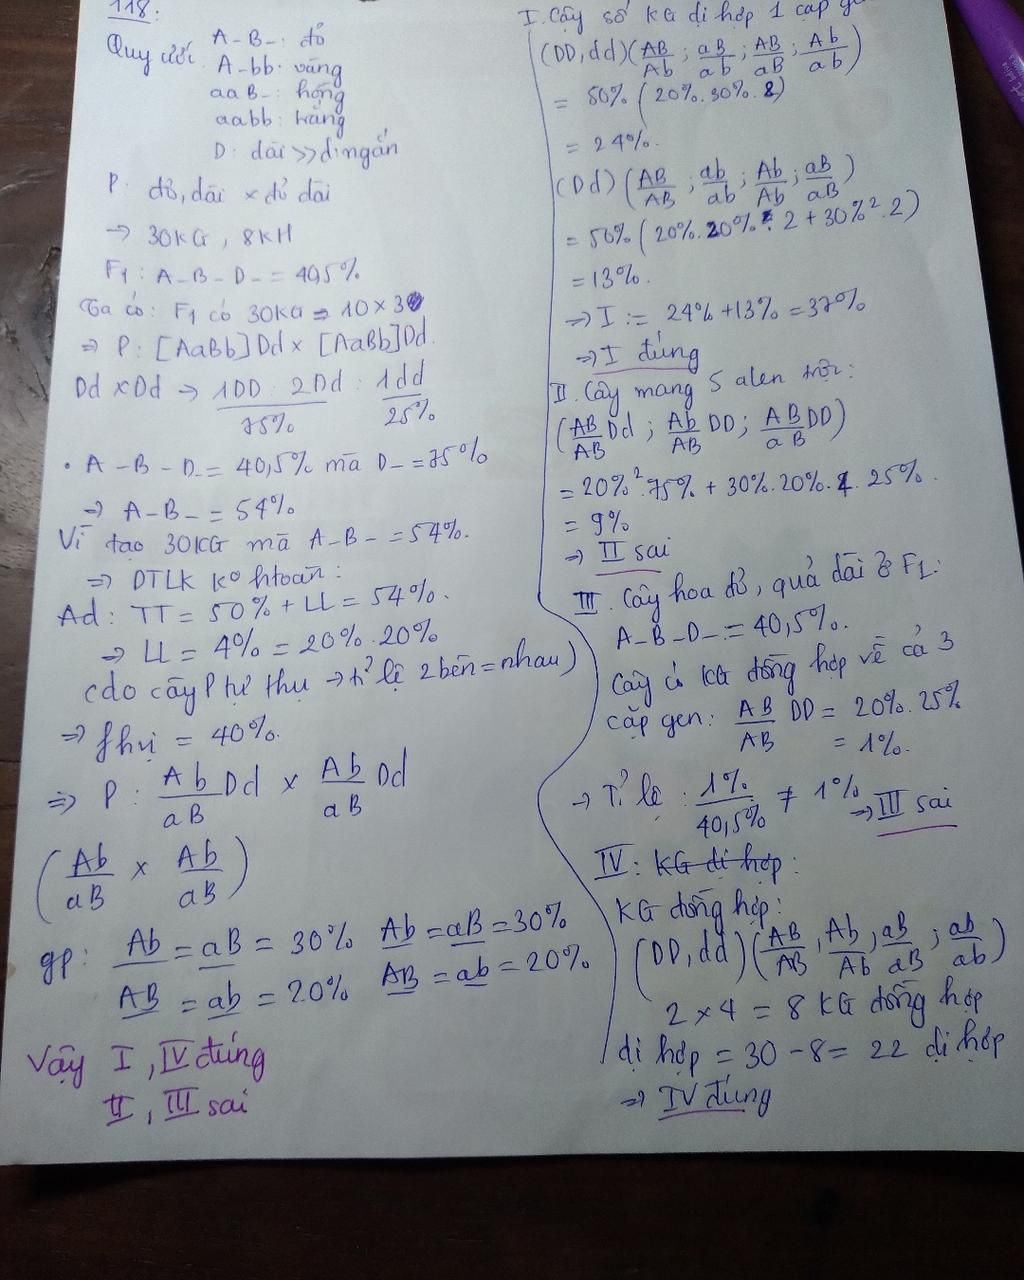 118:
Quy ước A-B-: đỏ
A-bb: vàng
aaB-: hồng
aabb: trắng
D: dài >> d: ngắn
P: đỏ, dài × đỏ dài
→ 30KG, 8KH
F1: A-B-D- = 40,5%
Ta có: F1 có 30KG = 10 × 3
⇒ P: [AaBb]Dd × [AaBb]Dd.
Dd × Dd → 1DD : 2Dd : 1dd
75% 25%
• A-B-D- = 40,5% mà D- = 75%
⇒ A-B- = 54%
Vì tạo 30KG mà A-B- = 54%.
⇒ DTLK kº htoàn:
Ad: TT = 50% + LL = 54%.
⇒ LL = 4% = 20%.20%
(do cây P tự thụ → tỉ lệ 2 bên = nhau)
⇒ fhvị = 40%.
⇒ P: Ab/aB Dd × Ab/aB Dd
(Ab/aB × Ab/aB)
gp: Ab = aB = 30% Ab = aB = 30%
AB = ab = 20% AB = ab = 20%
Vậy I, IV đúng
II, III sai
I. Cây số KG dị hợp 1 cặp
(DD, dd)(AB/Ab; aB/ab; AB/aB; Ab/ab)
= 50% (20%.30%.8)
= 24%.
(Dd)(AB/AB; ab/ab; Ab/Ab; aB/aB)
= 50% (20%.20%.2 + 30%².2)
= 13%.
⇒ I := 24% + 13% = 37%
⇒ I đúng
II. Cây mang 5 alen trội:
(AB/AB Dd; Ab/AB DD; AB/aB DD)
= 20%².75% + 30%.20%.4.25%.
= 9%
⇒ II sai
III. Cây hoa đỏ, quả dài ở F1:
A-B-D- = 40,5%.
Cây có KG đồng hợp về cả 3
cặp gen: AB/AB DD = 20%.25%
= 1%.
→ Tỉ lệ: 1%/40,5% ≠ 1% ⇒ III sai
IV: KG dị hợp:
KG đồng hợp:
(DD, dd)(AB/AB, Ab/Ab, aB/aB; ab/ab)
2 × 4 = 8 KG đồng hợp
dị hợp = 30 - 8 = 22 dị hợp
⇒ IV đúng